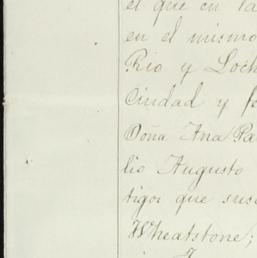 el que en la
en el mismo
Rio y Loch
Ciudad y fo
Doña Ana Pa
lio Augusto
tigos que sus
Wheatstone;